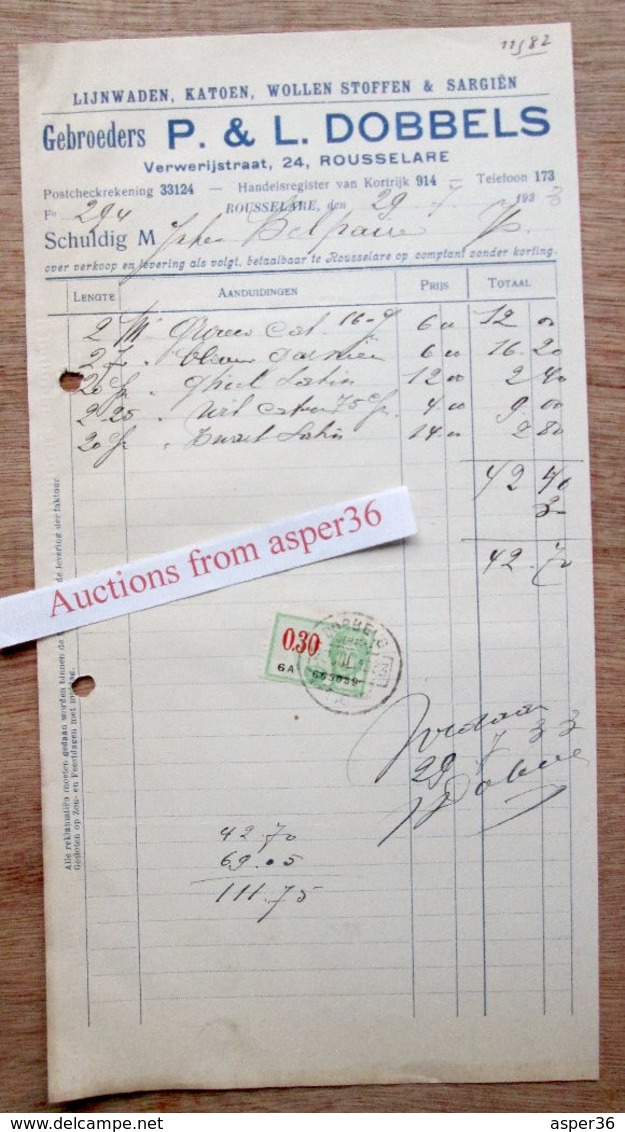 11582
LIJNWADEN, KATOEN, WOLLEN STOFFEN & SARGIËN
Gebroeders P. & L. DOBBELS
Verwerijstraat, 24, ROUSSELARE
Postcheckrekening 33124 — Handelsregister van Kortrijk 914 — Telefoon 173
Fo 294 ROUSSELARE, den 29 7 1933
Schuldig M
over verkoop en levering als volgt, betaalbaar te Rousselare op comptant zonder korting.
LENGTE AANDUIDINGEN PRIJS TOTAAL
2 M cat 6 00 12 00
2 70 6 00 16 20
20 Satin 12 00 2 40
2 25 75 4 00 9 00
20 Zwart Satin 14 00 2 80
42 40
30
42 70
Auctions from asper36
0.30
6A 663039
Voldaan
29 7 33
42.70
69.05
111.75
Alle reklamatiën moeten gedaan worden binnen de de levering der faktuur
Gesloten op Zon- en Feestdagen met
asper36